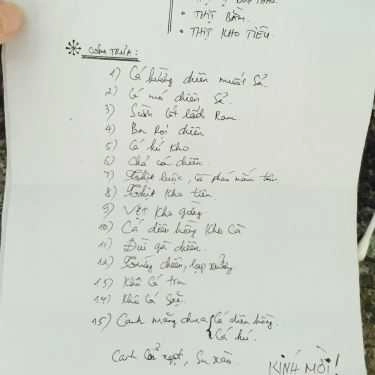 • THỊT BẰM.
• THỊT KHO TIÊU.
CƠM TRƯA:
1) Cá hường chiên muối sả
2) Cá chiên sả.
3) Sườn cốt lếch Ram
4) Ba rọi chiên
5) Cá hú kho
6) Chả cá chiên
7) Thịt luộc, cà pháo mắm
8) Thịt kho tiêu
9) Vịt kho gừng
10) Cá diêu hồng kho cà
11) Đùi gà chiên.
12) Trứng chiên, lạp xưởng
13) Khô Cá tra
14) Khô Cá Sặc
15) Canh măng chua { Cá diêu hồng.
Cá hú.
Canh xào
KÍNH MỜI!